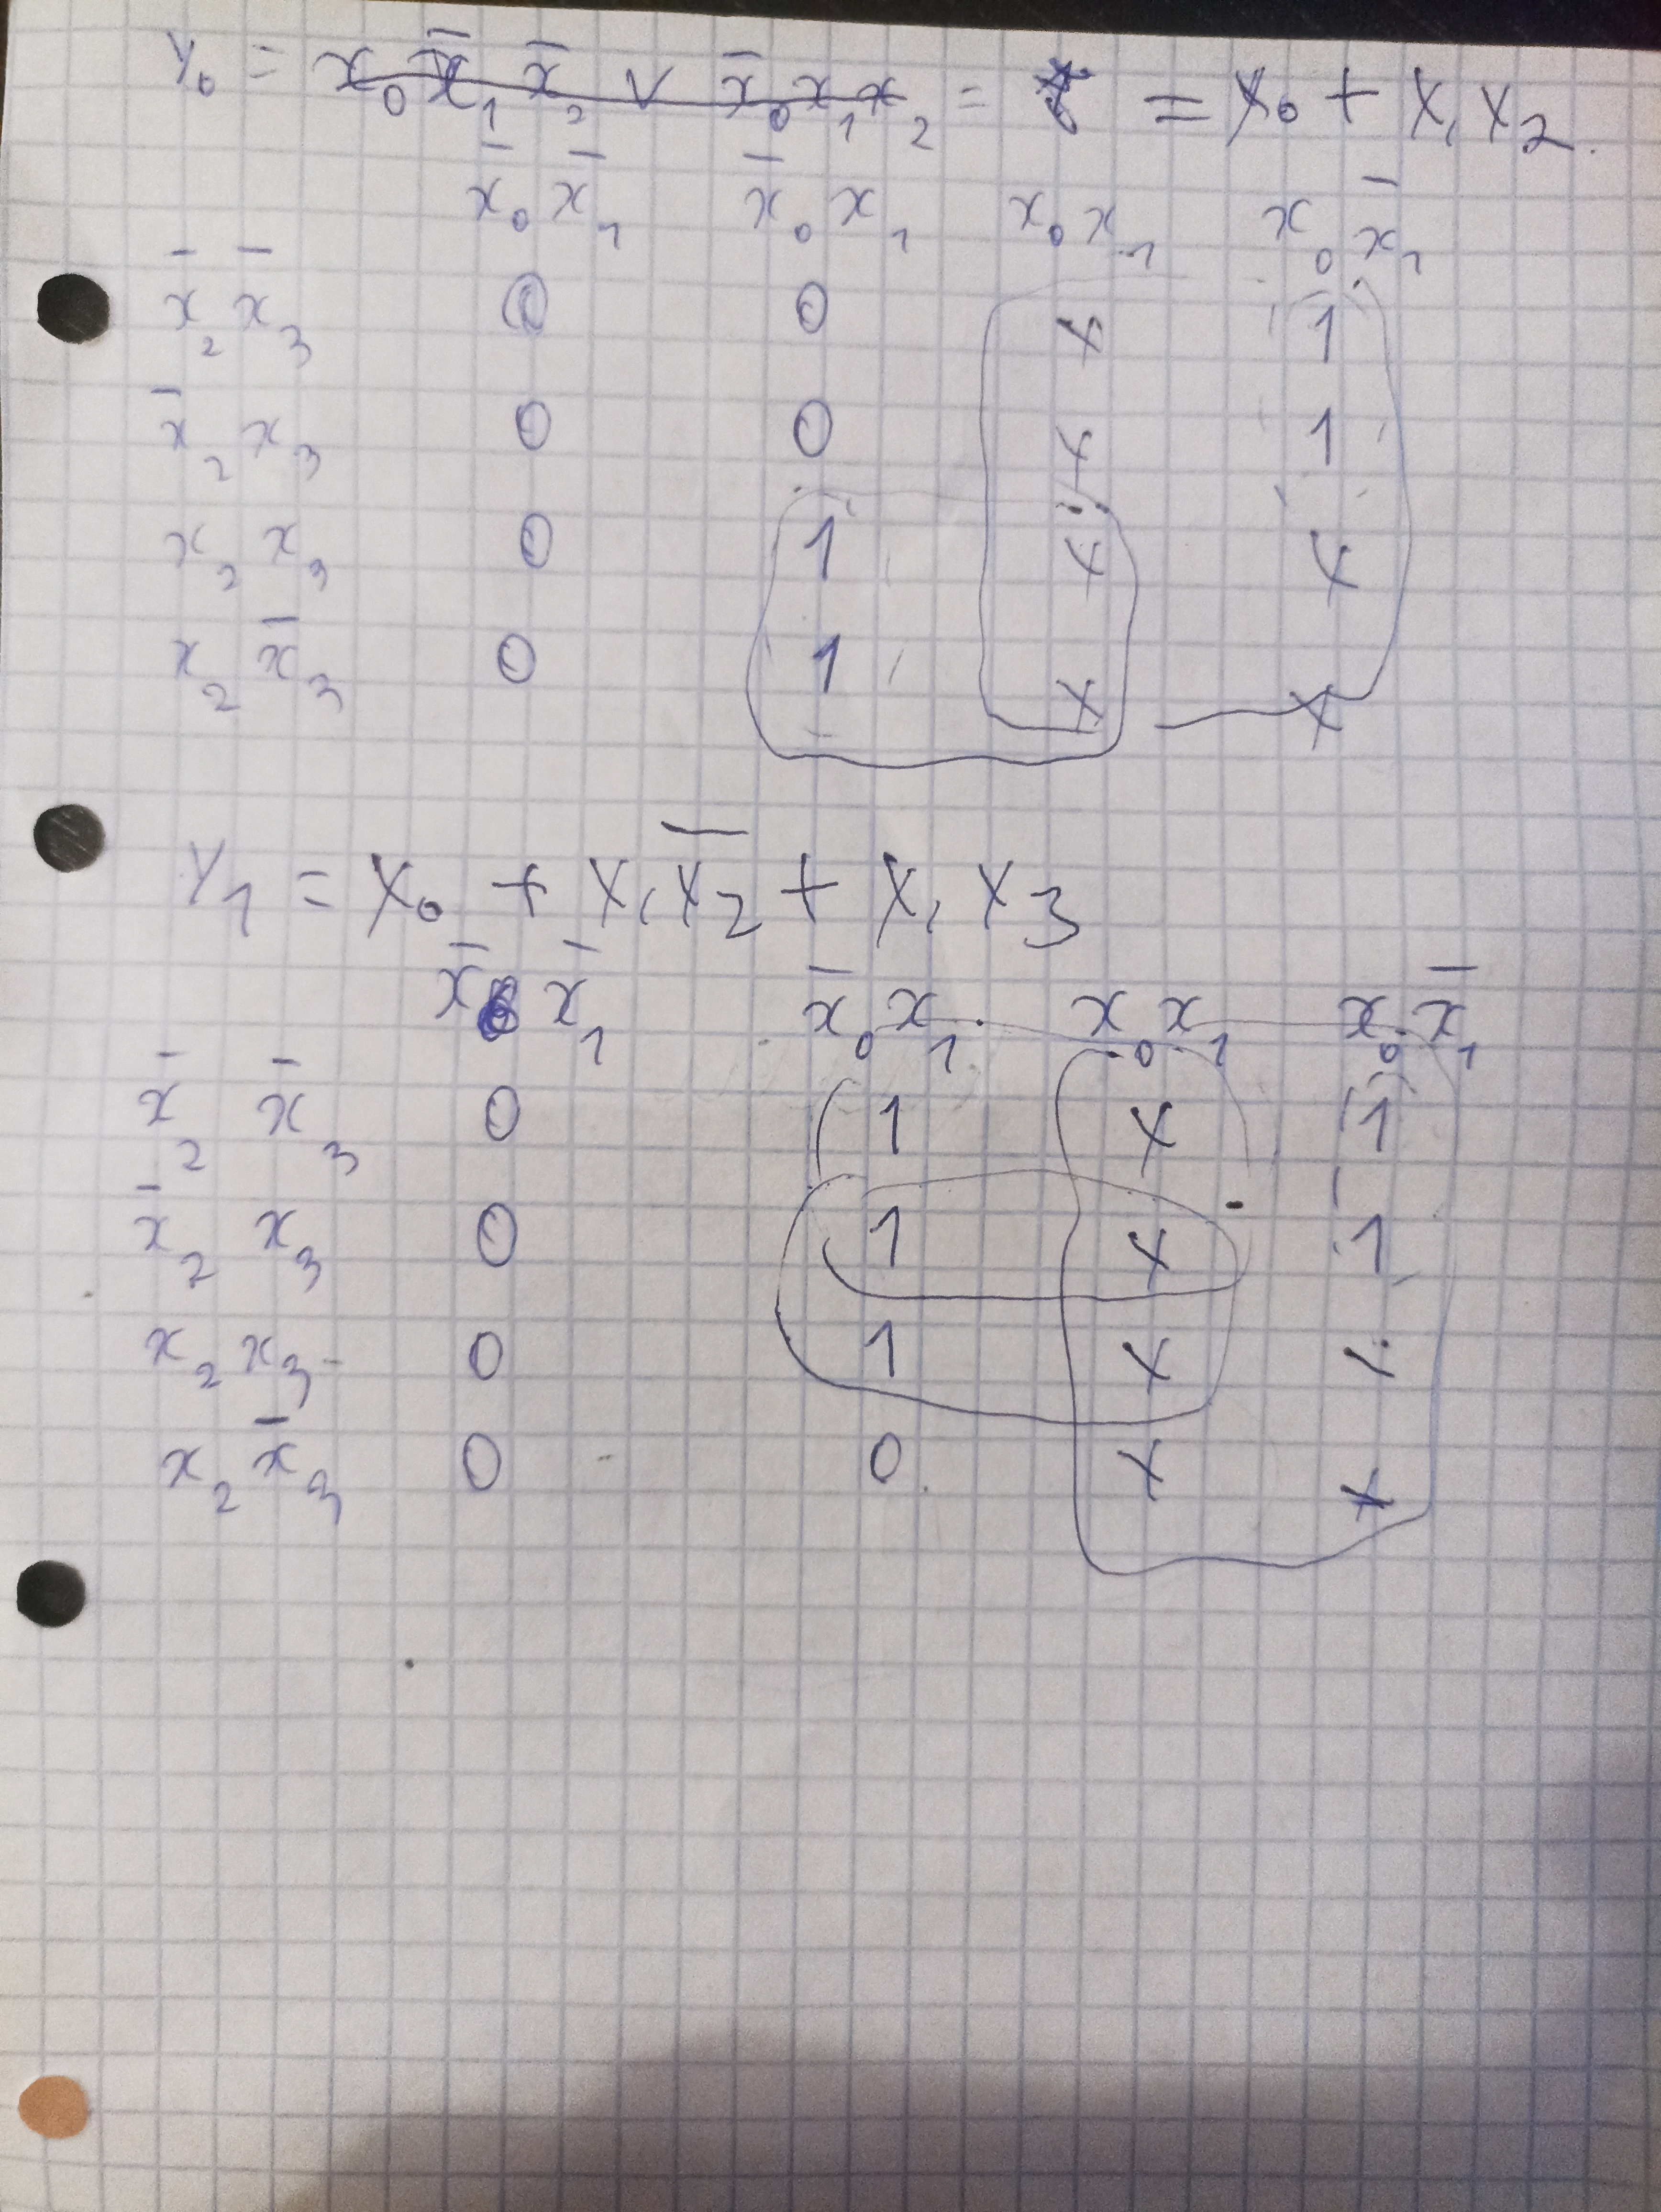 y₀ = x₀ x̄₁ x̄₂ ∨ x̄₀ x₁ x₂ = = x₀ + x₁ x₂.
x̄₀ x̄₁ x̄₀ x₁ x₀ x₁ x₀ x̄₁
x̄₂ x̄₃ 0 0 x 1
x̄₂ x₃ 0 0 x 1
x₂ x₃ 0 1 x x
x₂ x̄₃ 0 1 x x
y₁ = x₀ + x₁ x̄₂ + x₁ x₃
x̄₀ x̄₁ x̄₀ x₁ x₀ x₁ x₀ x̄₁
x̄₂ x̄₃ 0 1 x 1
x̄₂ x₃ 0 1 x 1
x₂ x₃ 0 1 x x
x₂ x̄₃ 0 0 x x